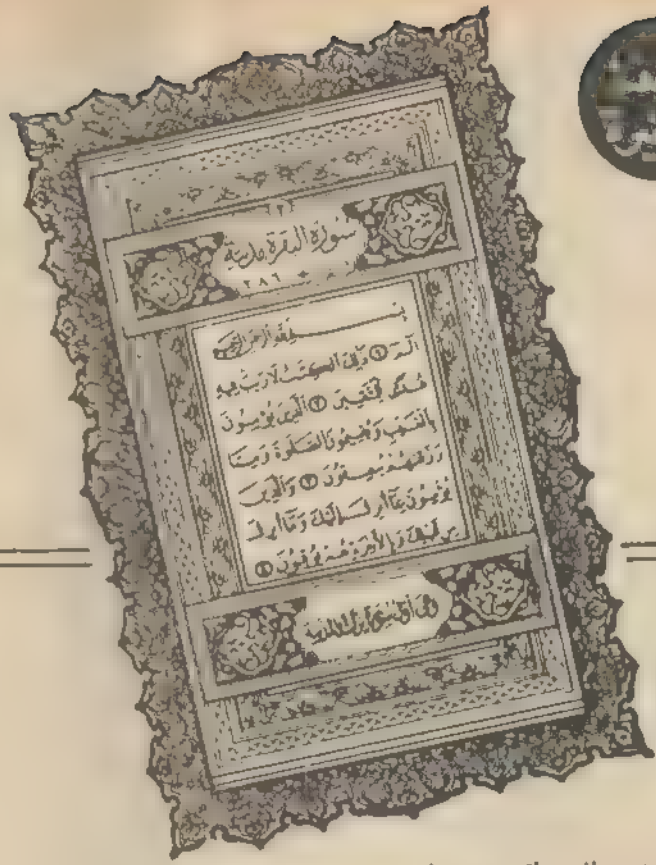 سُورَةُ البَقَرَةِ مَدَنِيَّة
٢٨٦
بِسْمِ اللَّهِ الرَّحْمَنِ الرَّحِيمِ
الٓمٓ ١ ذَٰلِكَ الْكِتَٰبُ لَا رَيْبَ فِيهِ
هُدًى لِّلْمُتَّقِينَ ٢ الَّذِينَ يُؤْمِنُونَ
بِالْغَيْبِ وَيُقِيمُونَ الصَّلَوٰةَ وَمِمَّا
رَزَقْنَٰهُمْ يُنفِقُونَ ٣ وَالَّذِينَ
يُؤْمِنُونَ بِمَا أُنزِلَ إِلَيْكَ وَمَا أُنزِلَ
مِن قَبْلِكَ وَبِالْآخِرَةِ هُمْ يُوقِنُونَ ٤